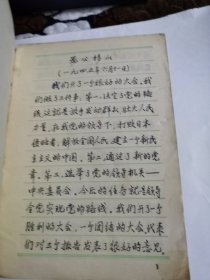 愚公移山
(一九四五年六月十一日)
我们开了一个很好的大会。我
们做了三件事:第一,决定了党的路
线,这就是放手发动群众,壮大人民
力量,在我党的领导下,打败日本
侵略者,解放全国人民,建立一个新民
主主义的中国。第二,通过了新的党
章。第三,选举了党的领导机关——
中央委员会。今后的任务就是领导
全党实现党的路线。我们开了一个
胜利的大会,一个团结的大会。代表
们对三个报告发表了很好的意见。